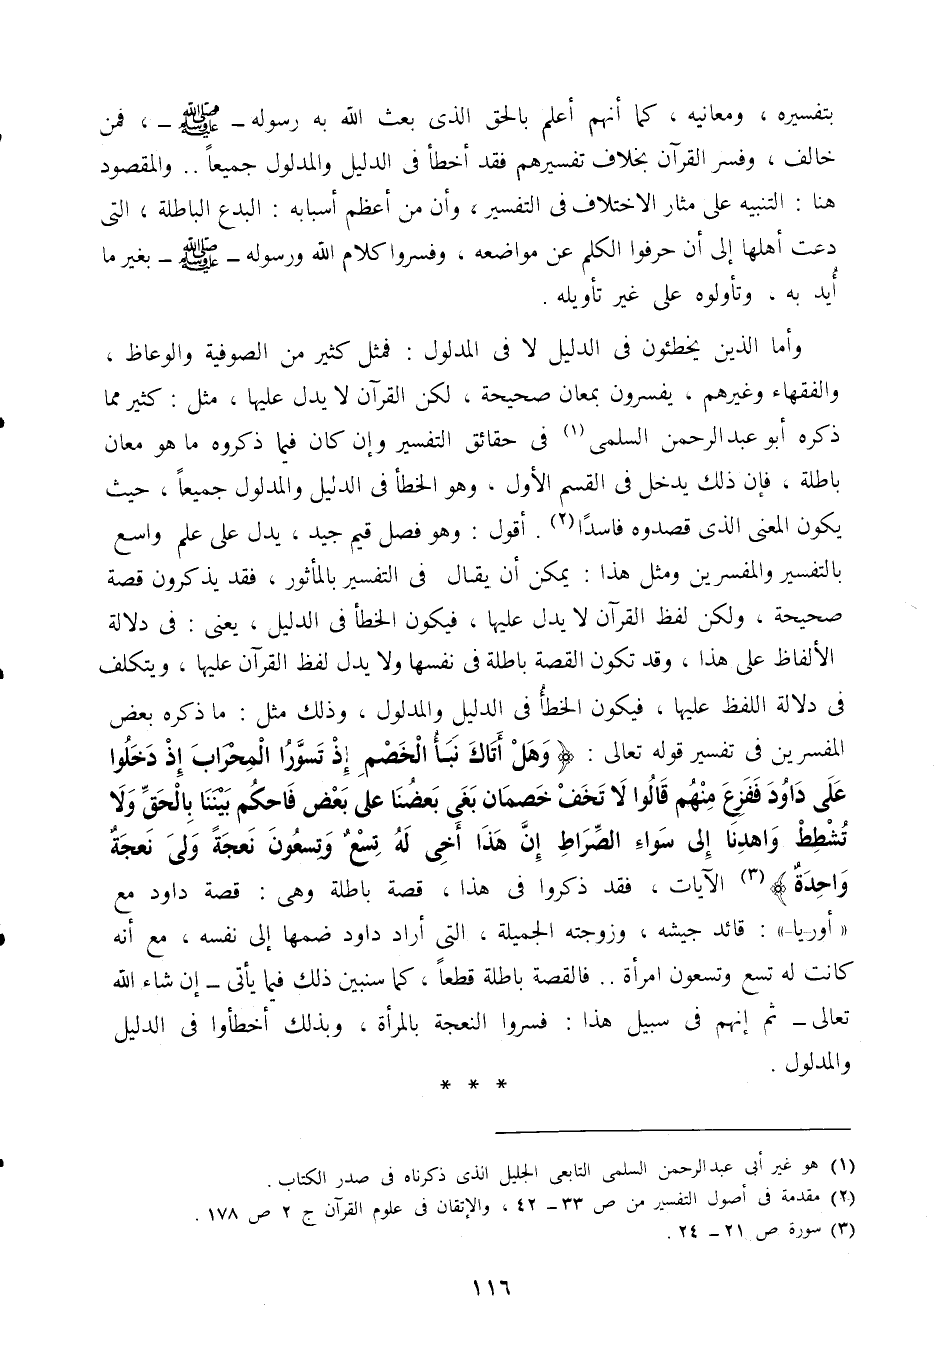 بتفسيره ، ومعانيه ، كما أنهم أعلم بالحق الذى بعث الله به رسوله ـ ﷺ ـ ، فمن
خالف ، وفسر القرآن بخلاف تفسيرهم فقد أخطأ فى الدليل والمدلول جميعاً .. والمقصود
هنا : التنبيه على مثار الاختلاف فى التفسير ، وأن من أعظم أسبابه : البدع الباطلة ، التى
دعت أهلها إلى أن حرفوا الكلم عن مواضعه ، وفسروا كلام الله ورسوله ـ ﷺ ـ بغير ما
أُيد به ، وتأولوه على غير تأويله .
وأما الذين يخطئون فى الدليل لا فى المدلول : فمثل كثير من الصوفية والوعاظ ،
والفقهاء وغيرهم ، يفسرون بمعان صحيحة ، لكن القرآن لا يدل عليها ، مثل : كثير مما
ذكره أبو عبد الرحمن السلمى (١) فى حقائق التفسير وإن كان فيما ذكروه ما هو معان
باطلة ، فإن ذلك يدخل فى القسم الأول ، وهو الخطأ فى الدليل والمدلول جميعاً ، حيث
يكون المعنى الذى قصدوه فاسدًا (٢) . أقول : وهو فصل قيم جيد ، يدل على علم واسع
بالتفسير والمفسرين ومثل هذا : يمكن أن يقال فى التفسير بالمأثور ، فقد يذكرون قصة
صحيحة ، ولكن لفظ القرآن لا يدل عليها ، فيكون الخطأ فى الدليل ، يعنى : فى دلالة
الألفاظ على هذا ، وقد تكون القصة باطلة فى نفسها ولا يدل لفظ القرآن عليها ، ويتكلف
فى دلالة اللفظ عليها ، فيكون الخطأُ فى الدليل والمدلول ، وذلك مثل : ما ذكره بعض
المفسرين فى تفسير قوله تعالى : ﴿ وَهَلْ أَتَاكَ نَبَأُ الْخَصْمِ إِذْ تَسوَّرُا الْمِحْرَاب إِذْ دَخَلُوا
عَلَى دَاوُدَ فَفَزِعَ مِنْهُم قَالُوا لَا تَخَفْ خَصمَان بَغَى بَعضُنَا على بَعْض فَاحكُم بَيْنَنَا بِالْحَقِّ وَلَا
تُشْطِطْ وَاهدِنَا إِلى سَوَاء الصِّرَاطِ إِنَّ هَذَا أَخِى لَهُ تِسْعٌ وَتِسعُونَ نَعجَةً وَلىَ نَعجَةٌ
وَاحِدَةٌ ﴾ (٣) الآيات ، فقد ذكروا فى هذا ، قصة باطلة وهى : قصة داود مع
« أوريا » : قائد جيشه ، وزوجته الجميلة ، التى أراد داود ضمها إلى نفسه ، مع أنه
كانت له تسع وتسعون امرأة .. فالقصة باطلة قطعاً ، كما سنبين ذلك فيما يأتى ـ إن شاء الله
تعالى ـ ثم إنهم فى سبيل هذا : فسروا النعجة بالمرأة ، وبذلك أخطأوا فى الدليل
والمدلول .
* * *
(١) هو غير أبى عبد الرحمن السلمى التابعى الجليل الذى ذكرناه فى صدر الكتاب .
(٢) مقدمة فى أصول التفسير من ص ٣٣ ـ ٤٢ ، والإتقان فى علوم القرآن ج ٢ ص ١٧٨ .
(٣) سورة ص ٢١ ـ ٢٤ .
١١٦